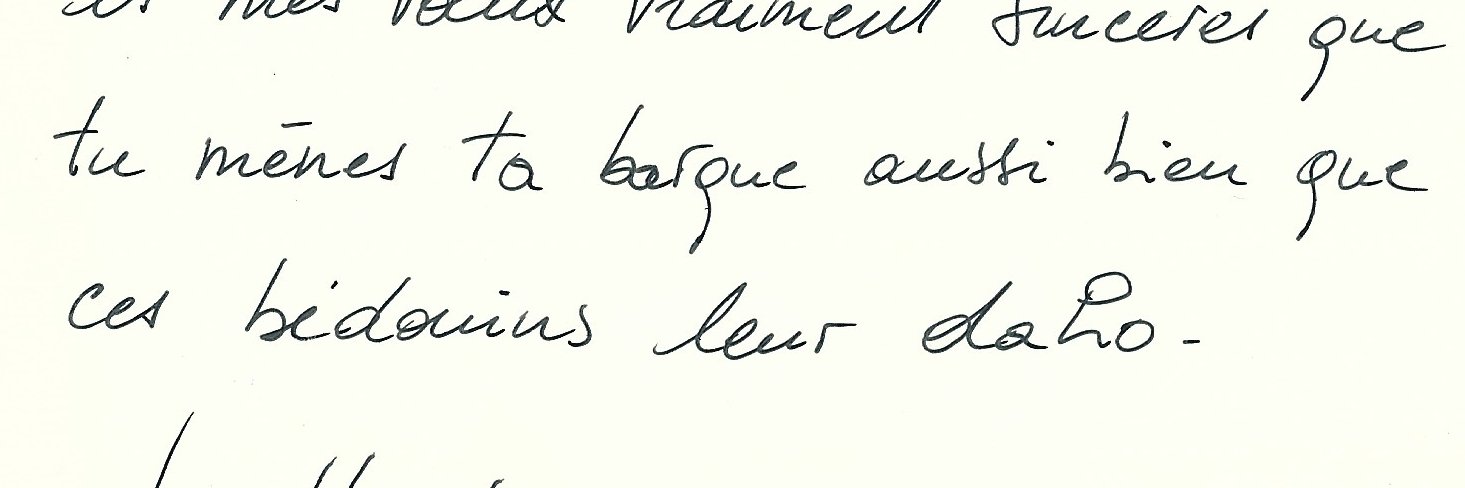 et mes vœux vraiment sincères que
tu mēnes ta barque aussi bien que
ces bédouins leur daho.